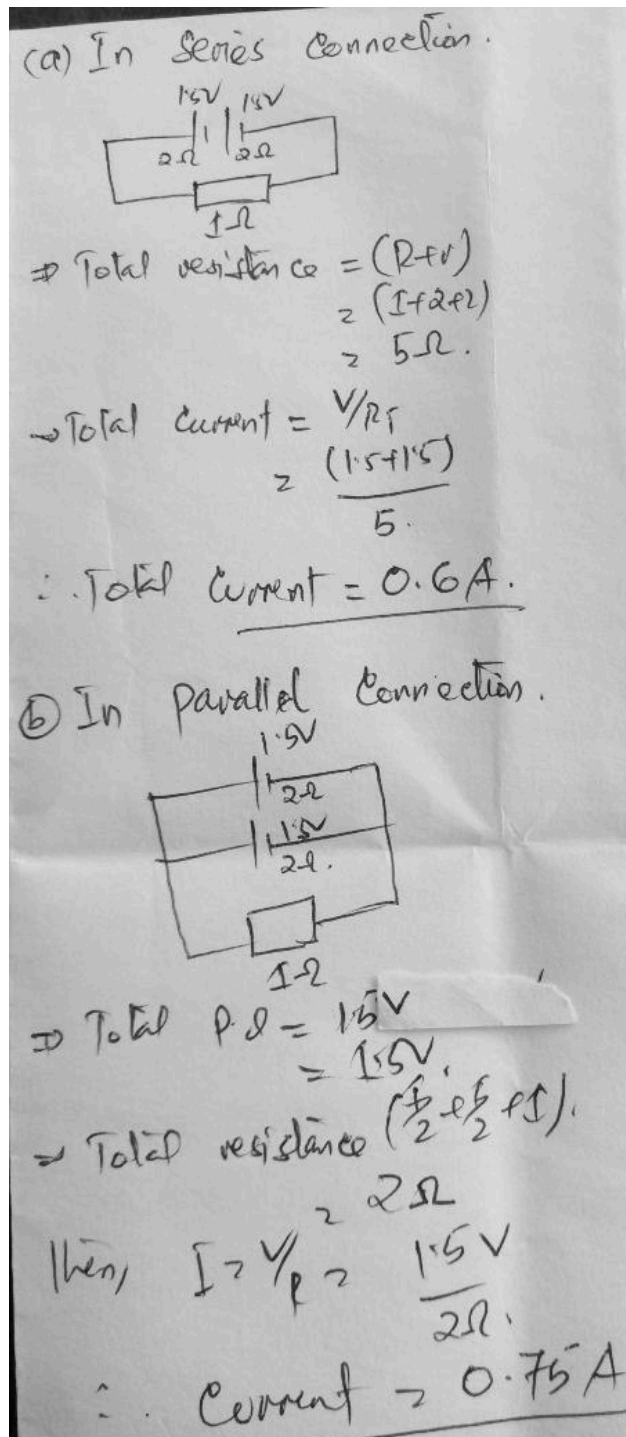 (a) In Series Connection.
1.5V 1.5V
2Ω 2Ω
1Ω
⇒ Total resistance = (R+r)
= (1+2+2)
= 5Ω.
→ Total Current = V/RT
= (1.5+1.5)
5.
∴ Total Current = 0.6A.
(b) In parallel Connection.
1.5V
2Ω
1.5V
2Ω.
1Ω
⇒ Total P.d = 1.5V
= 1.5V.
⇒ Total resistance (1/2 + 1/2 + 1).
= 2Ω
Then, I = V/R = 1.5V
2Ω.
∴ Current = 0.75A